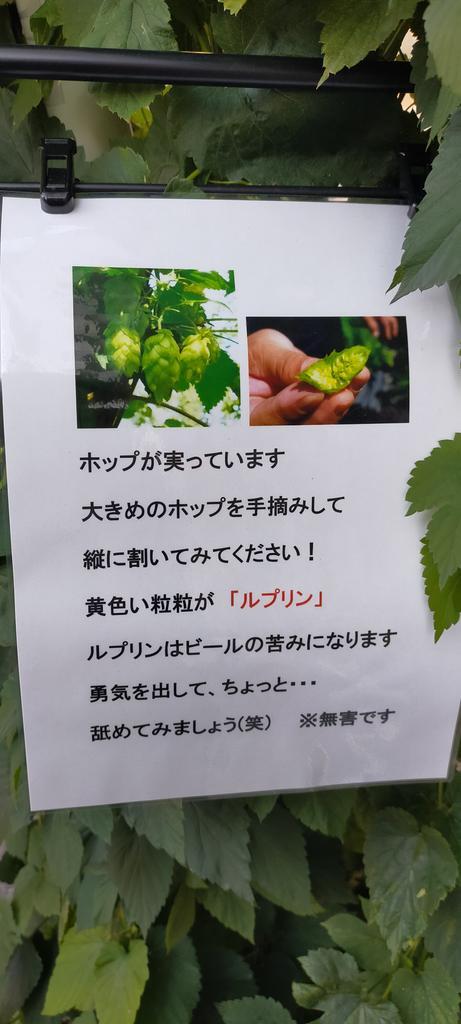 ホップが実っています
大きめのホップを手摘みして
縦に割いてみてください！
黄色い粒粒が 「ルプリン」
ルプリンはビールの苦みになります
勇気を出して、ちょっと・・・
舐めてみましょう(笑) ※無害です